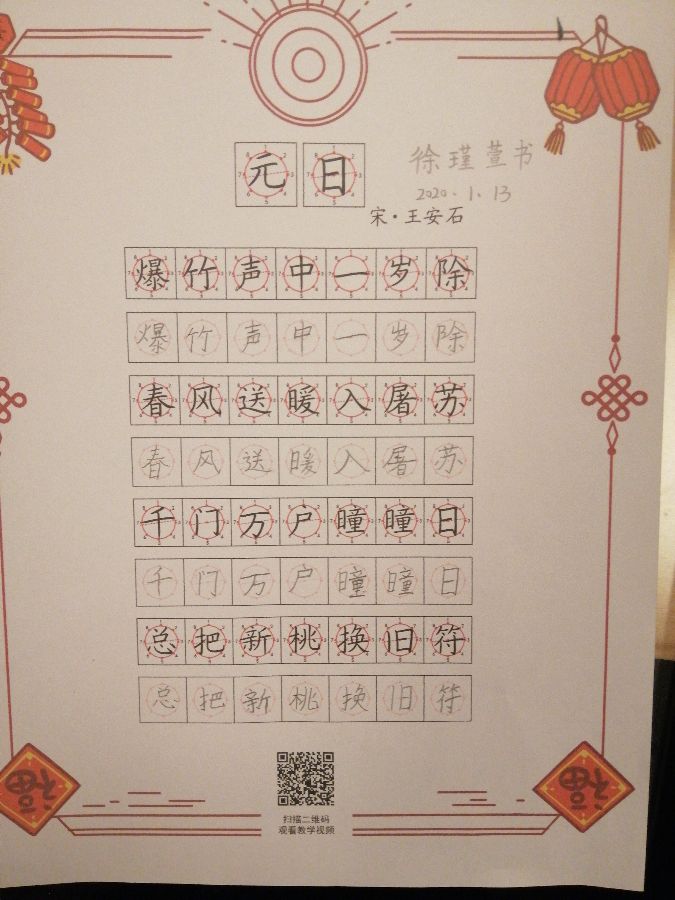 元日
徐瑾萱书
2020.1.13
宋·王安石
爆竹声中一岁除
爆竹声中一岁除
春风送暖入屠苏
春风送暖入屠苏
千门万户曈曈日
千门万户曈曈日
总把新桃换旧符
总把新桃换旧符
福 福
扫描二维码
观看教学视频